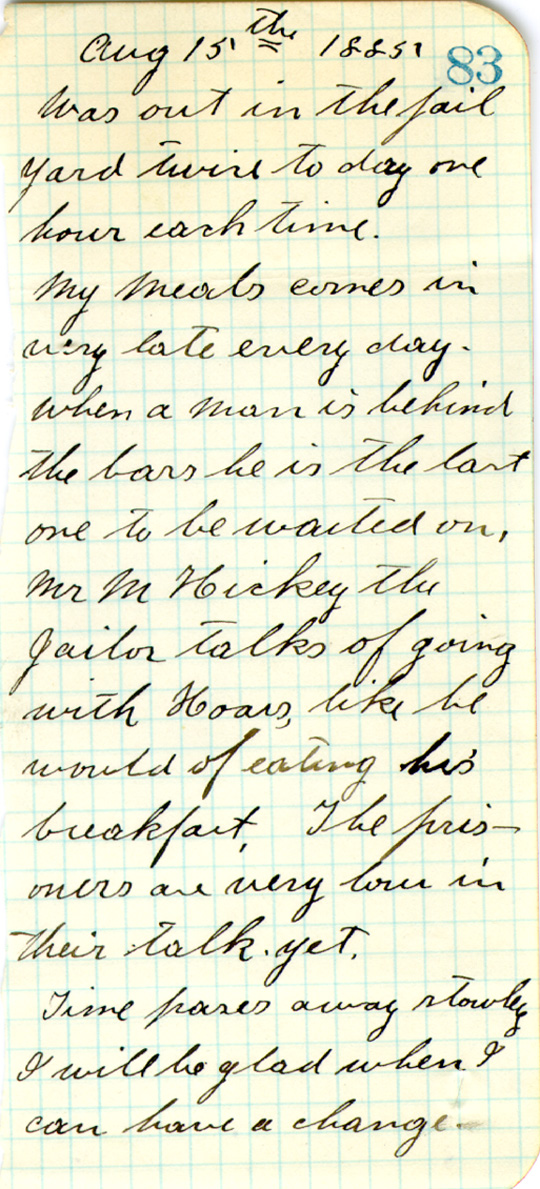 Aug 15th 1885
83
Was out in the jail
yard twice to day one
hour each time.
My meals comes in
very late every day.
when a man is behind
the bars he is the last
one to be waited on,
Mr M Hickey the
Jailor talks of going
with Hoars, like he
would of eating his
breakfast, The pris-
oners are very low in
their talk yet.
Time pases away slowley
I will be glad when I
can have a change